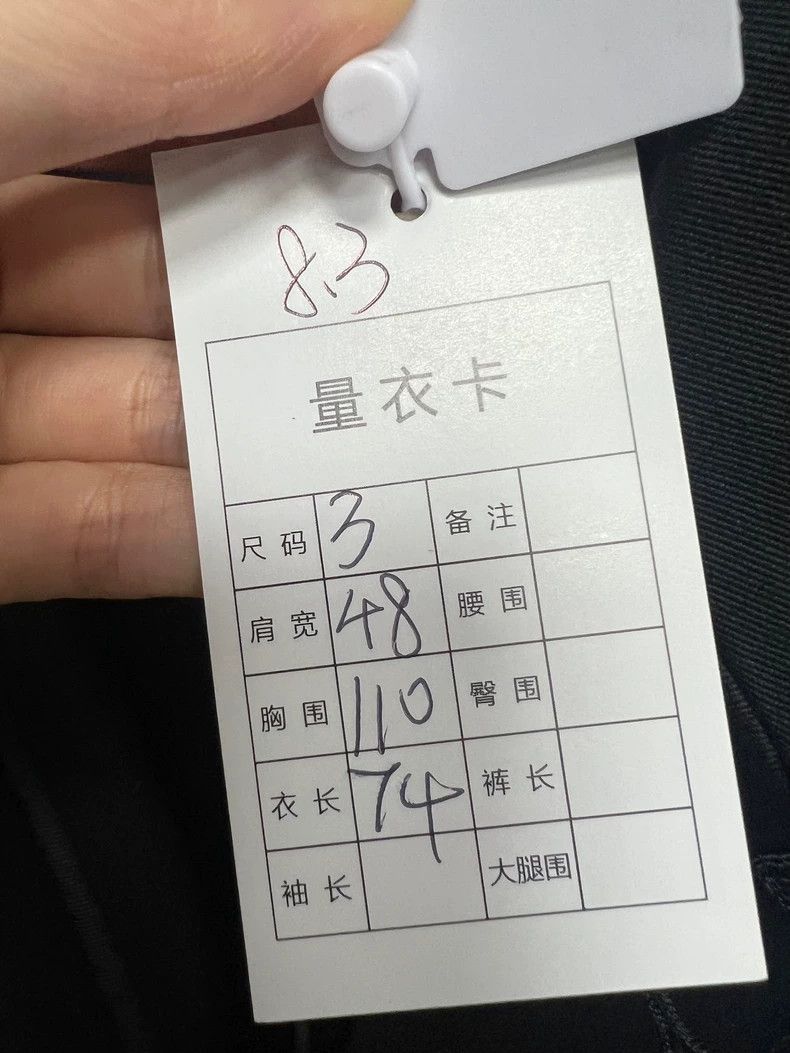 8.3
量衣卡
尺码 3 备注
肩宽 48 腰围
胸围 110 臀围
衣长 74 裤长
袖长 大腿围